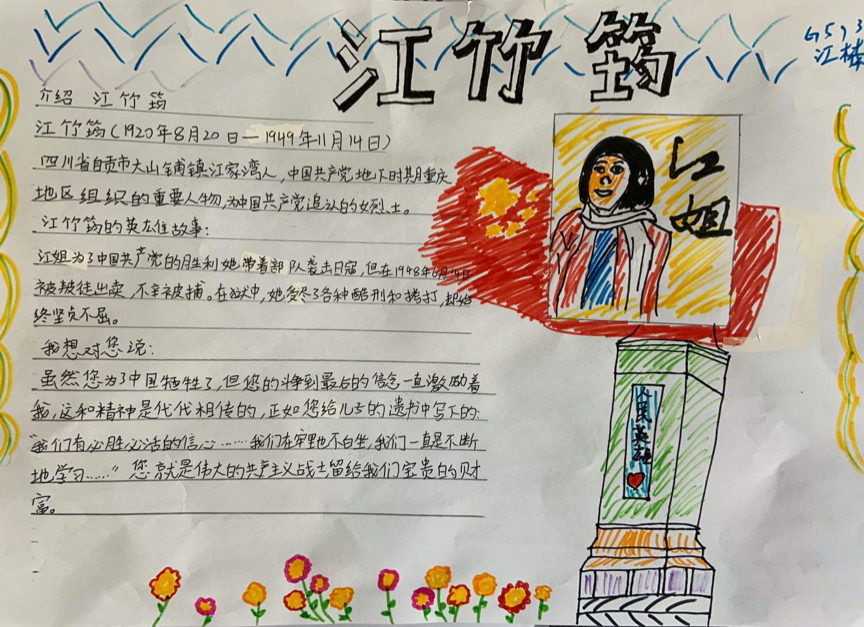 江竹筠
介绍 江竹筠
江竹筠(1920年8月20日—1949年11月14日)
四川省自贡市大山铺镇江家湾人,中国共产党地下时期重庆
地区组织的重要人物,为中国共产党追认的女烈土。
江竹筠的英雄故事:
江姐为了中国共产党的胜利她带着部队袭击日寇,但在1948年6月14日
被叛徒出卖,不幸被捕。在狱中,她受尽了各种酷刑和拷打,却始
终坚贞不屈。
我想对您说:
虽然您为了中国牺牲了,但您的斗争到最后的信念一直激励着
我,这和精神是代代相传的,正如您给儿子的遗书中写下的:
"我们有必胜必活的信心……我们在牢里也不白坐,我们一直是不断
地学习……"您就是伟大的共产主义战士留给我们宝贵的财
富。
江
姐
人民英雄